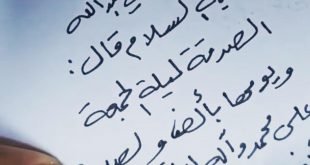 عبد الله
السلام قال:
الصدقة ليلة الجمعة
ويومها بألف والصلاة
على محمد وآله